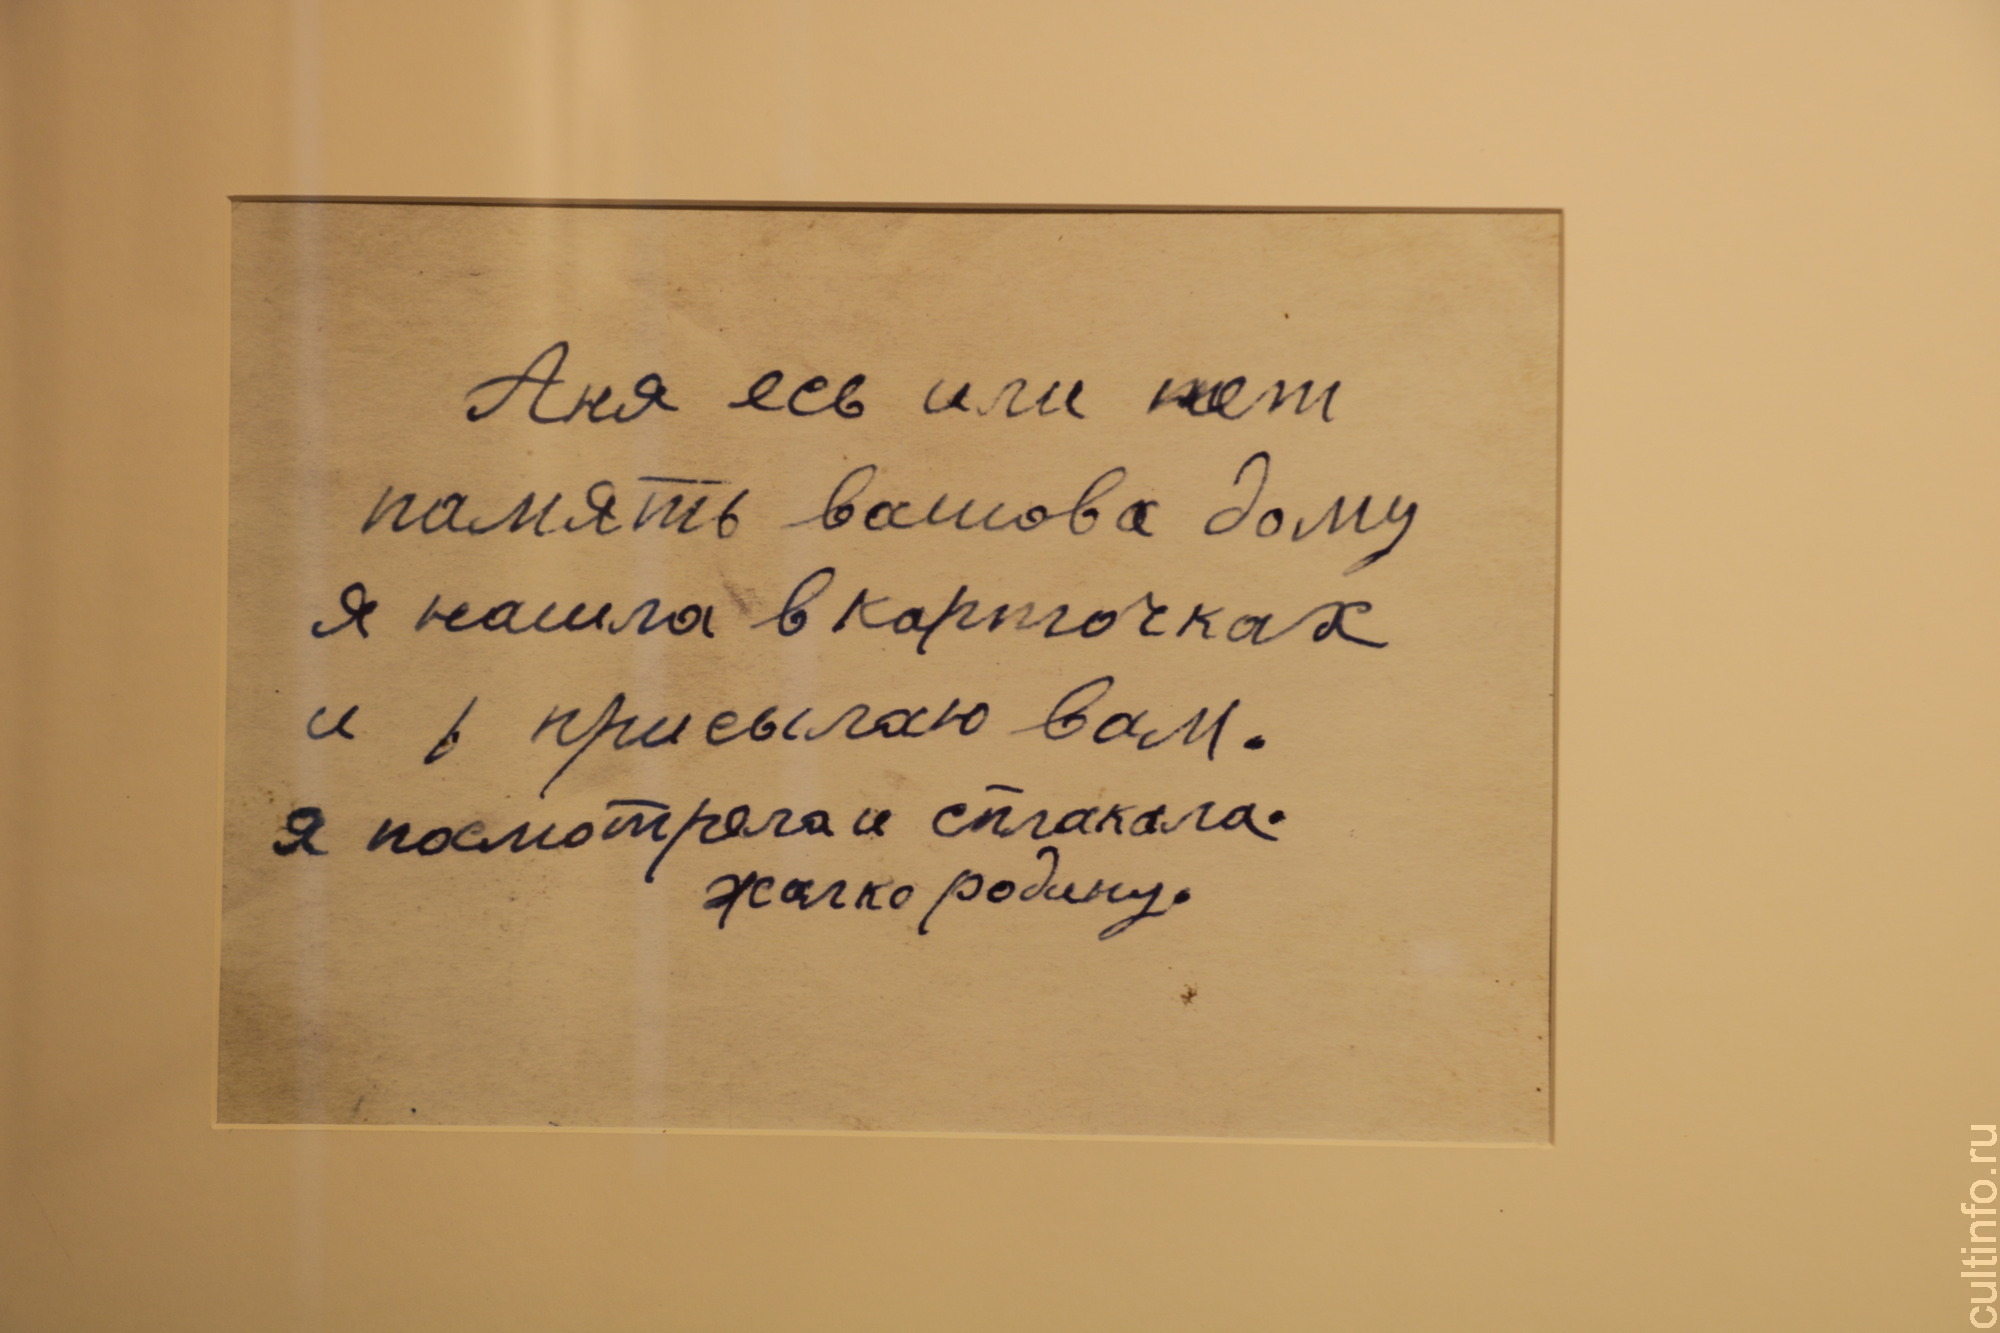 Аня есь или нет
память вашова дому
я нашла в карточках
и присылаю вам.
Я посмотрела и сплакала.
жалко родину.
cultinfo.ru